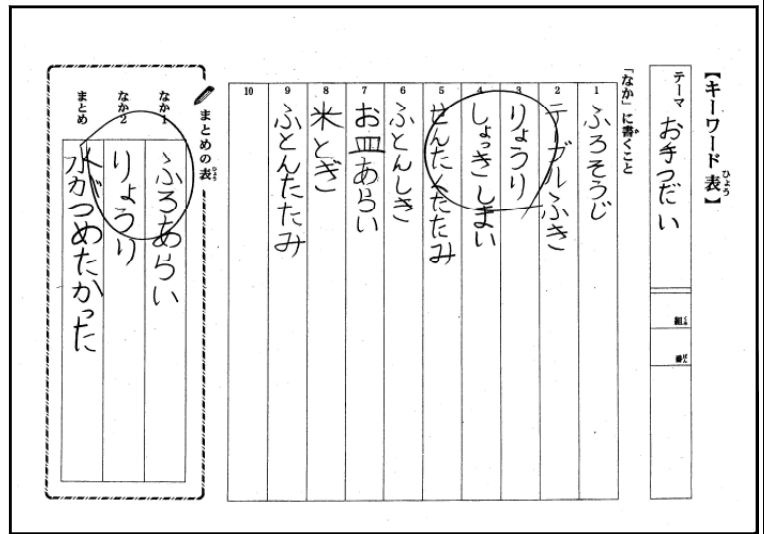 【キーワード表】
ひょう
テーマ お手つだい
組
くみ
番
ばん
「なか」に書くこと
か
1 ふろそうじ
2 テーブルふき
3 りょうり
4 しょっきしまい
5 せんたくたたみ
6 ふとんしき
7 お皿あらい
8 米とぎ
9 ふとんたたみ
10
まとめの表
ひょう
なか1 ふろあらい
なか2 りょうり
まとめ 水がつめたかった